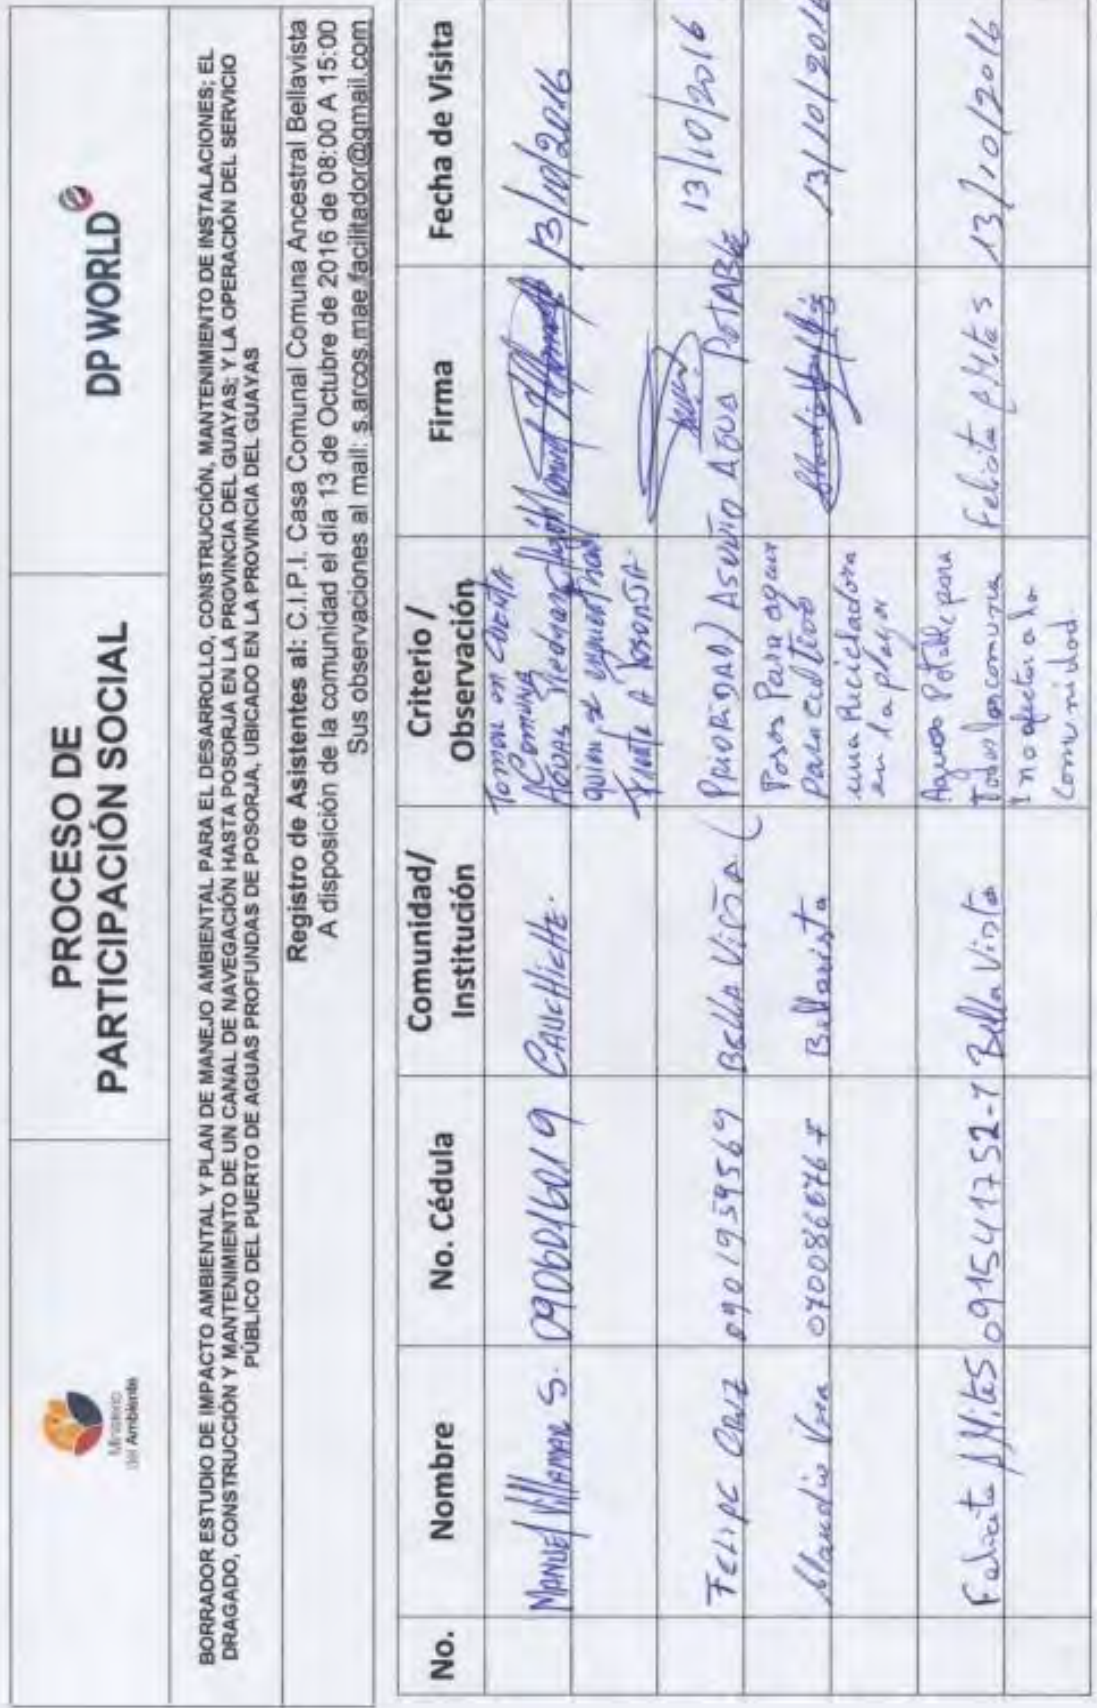 Ministerio
del Ambiente
PROCESO DE
PARTICIPACIÓN SOCIAL
DP WORLD
BORRADOR ESTUDIO DE IMPACTO AMBIENTAL Y PLAN DE MANEJO AMBIENTAL PARA EL DESARROLLO, CONSTRUCCIÓN, MANTENIMIENTO DE INSTALACIONES; EL
DRAGADO, CONSTRUCCIÓN Y MANTENIMIENTO DE UN CANAL DE NAVEGACIÓN HASTA POSORJA EN LA PROVINCIA DEL GUAYAS; Y LA OPERACIÓN DEL SERVICIO
PÚBLICO DEL PUERTO DE AGUAS PROFUNDAS DE POSORJA, UBICADO EN LA PROVINCIA DEL GUAYAS
Registro de Asistentes al: C.I.P.I. Casa Comunal Comuna Ancestral Bellavista
A disposición de la comunidad el día 13 de Octubre de 2016 de 08:00 A 15:00
Sus observaciones al mail: s.arcos.mae.facilitador@gmail.com
No. Nombre No. Cédula Comunidad/ Institución Criterio / Observación Firma Fecha de Visita
Manuel Villamar S. 0906016019 CAUCHICHE. 13/10/2016
Tomar en cuenta
Comuna
Aguas
frente a Posorja.
Felipe Cruz 0901959569 Bella Vista PRIORIDAD ASUNTO AGUA POTABLE 13/10/2016
Vera Bellavista 13/10/2016
Posos Para agua
para
una Recicladora
en la playa
Mites 091541752-1 Bella Vista Mites 13/10/2016
Agua Potable para
Toda la comuna
no afectar a la
comunidad.